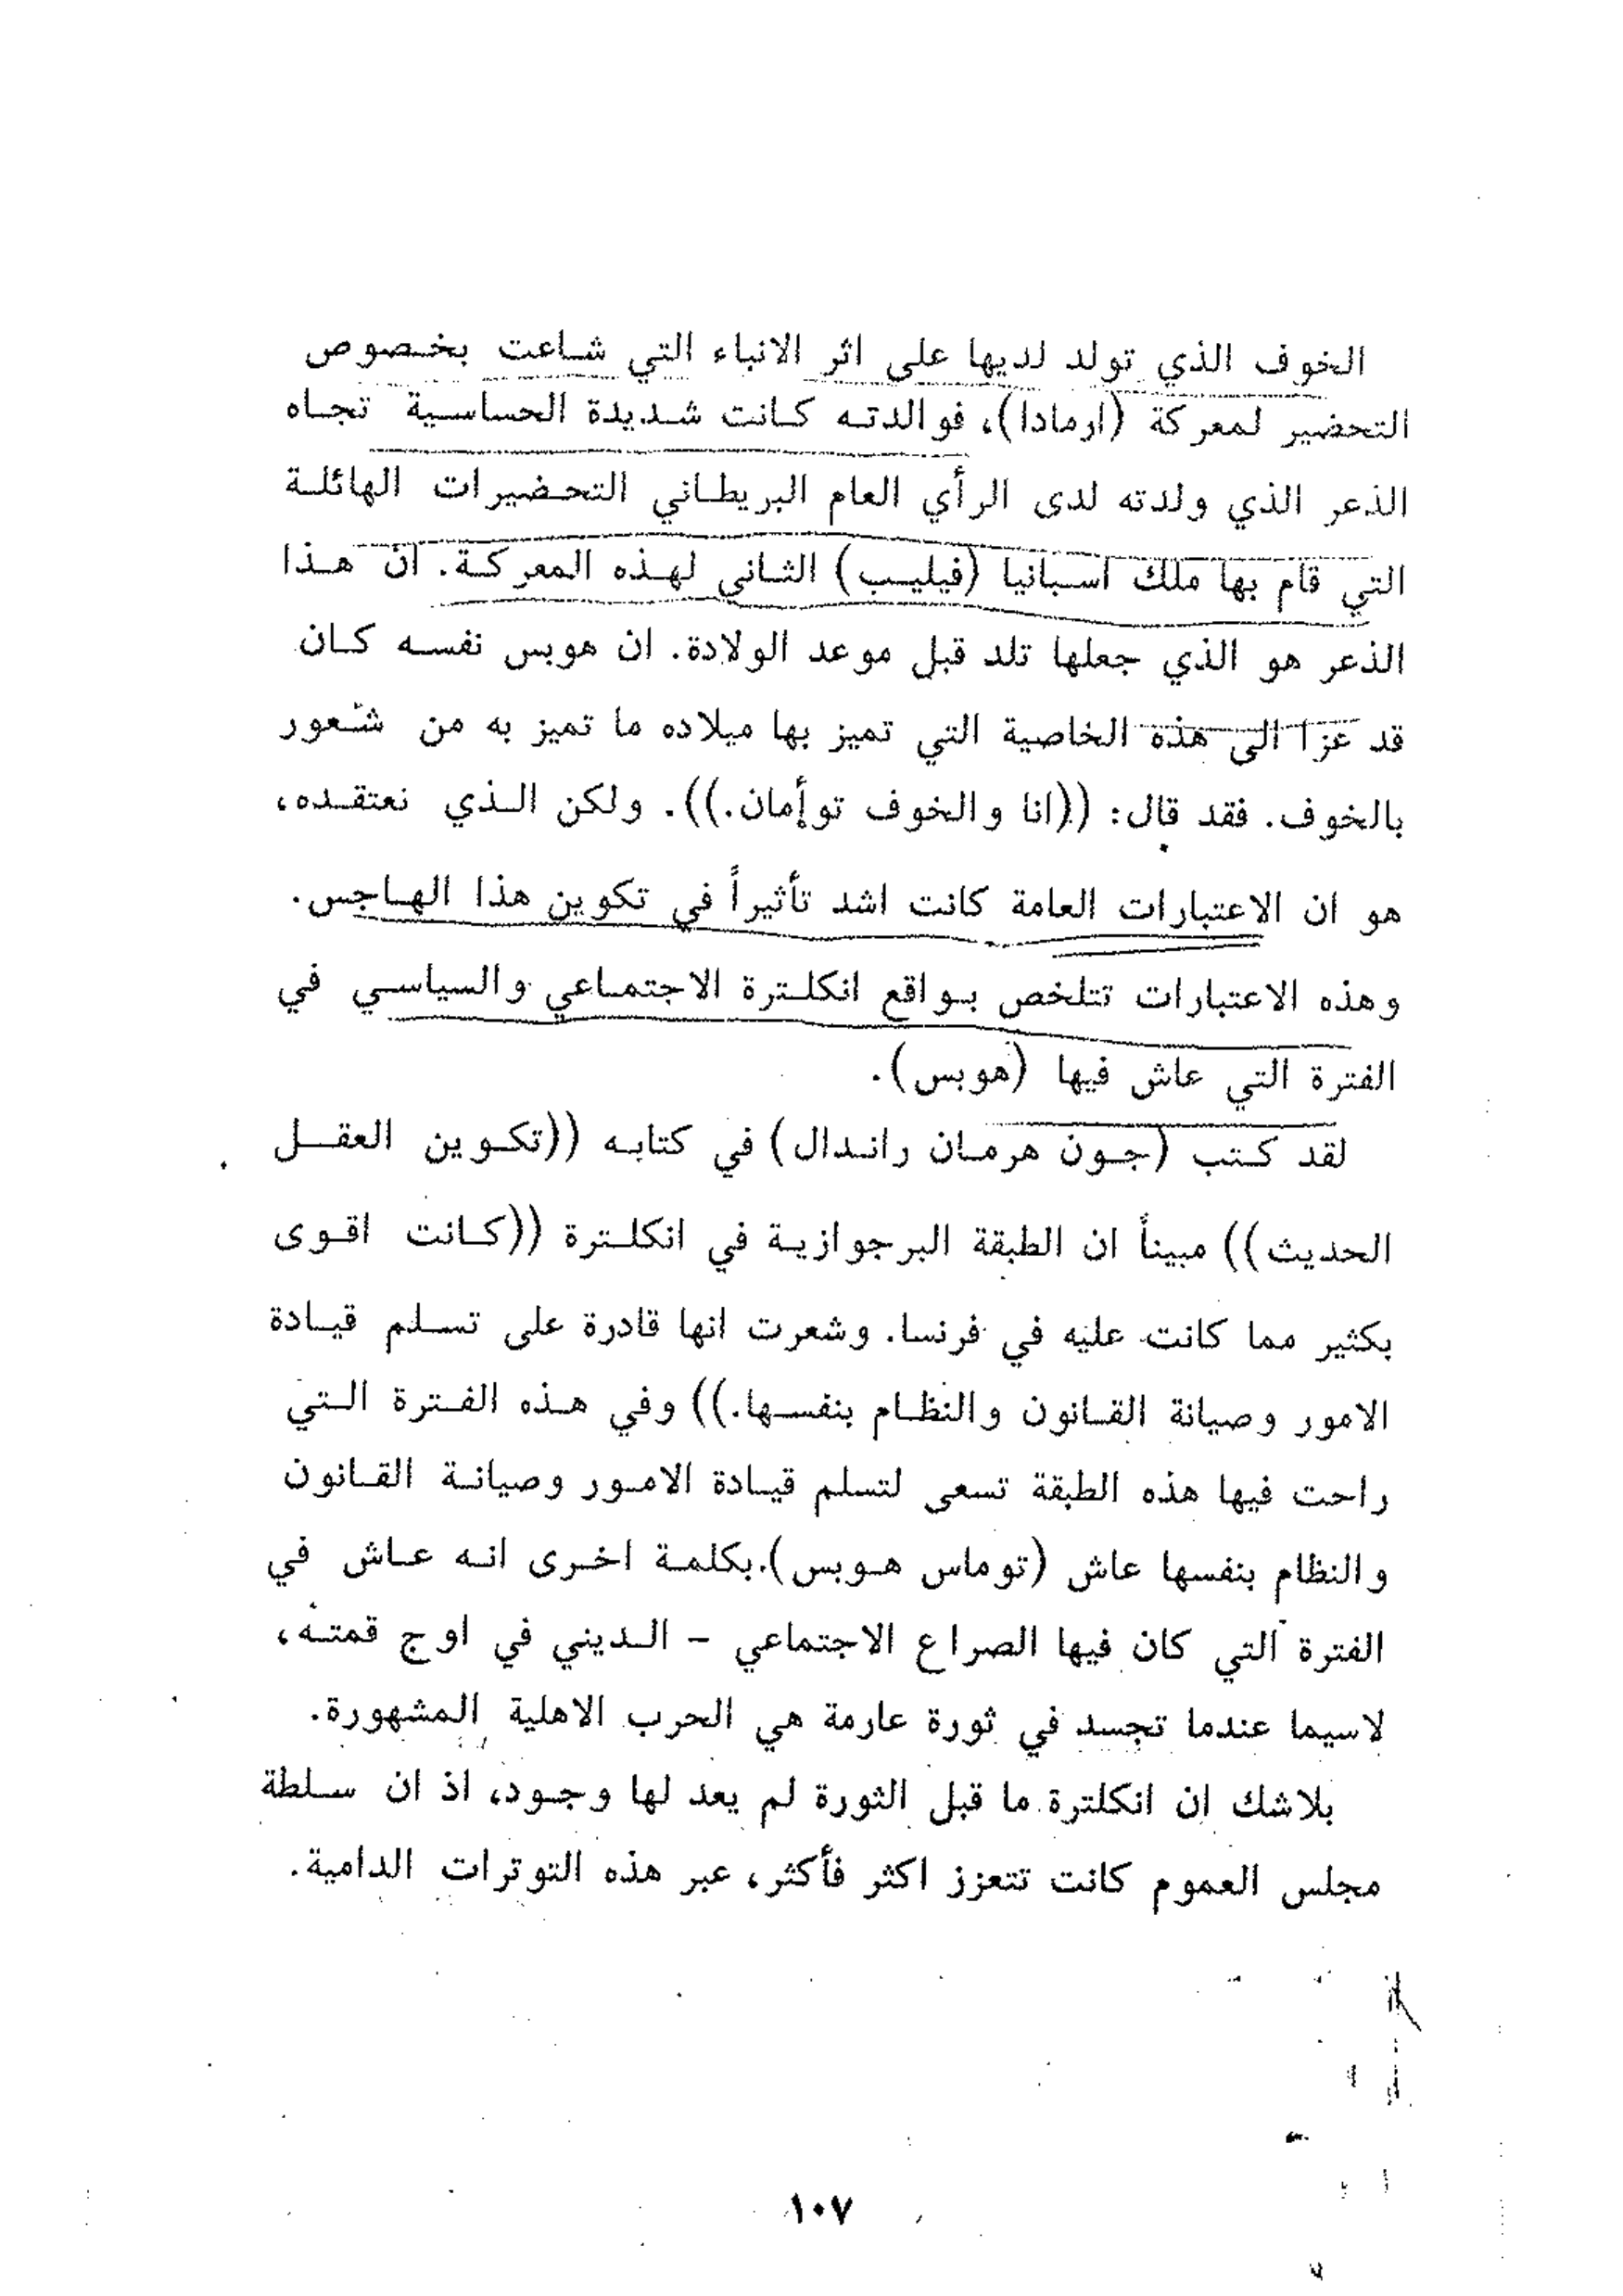 الخوف الذي تولد لديها على اثر الانباء التي شاعت بخصوص
التحضير لمعركة (ارمادا)، فوالدته كانت شديدة الحساسية تجاه
الذعر الذي ولدته لدى الرأي العام البريطاني التحضيرات الهائلة
التي قام بها ملك اسبانيا (فيليب) الثاني لهذه المعركة. ان هذا
الذعر هو الذي جعلها تلد قبل موعد الولادة. ان هوبس نفسه كان
قد عزا الى هذه الخاصية التي تميز بها ميلاده ما تميز به من شعور
بالخوف. فقد قال: ((انا والخوف توأمان.)). ولكن الذي نعتقده،
هو ان الاعتبارات العامة كانت اشد تأثيراً في تكوين هذا الهاجس.
وهذه الاعتبارات تتلخص بواقع انكلترة الاجتماعي والسياسي في
الفترة التي عاش فيها (هوبس).
لقد كتب (جون هرمان راندال) في كتابه ((تكوين العقل
الحديث)) مبيناً ان الطبقة البرجوازية في انكلترة ((كانت اقوى
بكثير مما كانت عليه في فرنسا. وشعرت انها قادرة على تسلم قيادة
الامور وصيانة القانون والنظام بنفسها.)) وفي هذه الفترة التي
راحت فيها هذه الطبقة تسعى لتسلم قيادة الامور وصيانة القانون
والنظام بنفسها عاش (توماس هوبس).بكلمة اخرى انه عاش في
الفترة التي كان فيها الصراع الاجتماعي - الديني في اوج قمته،
لاسيما عندما تجسد في ثورة عارمة هي الحرب الاهلية المشهورة.
بلاشك ان انكلترة ما قبل الثورة لم يعد لها وجود، اذ ان سلطة
مجلس العموم كانت تتعزز اكثر فأكثر، عبر هذه التوترات الدامية.
١٠٧